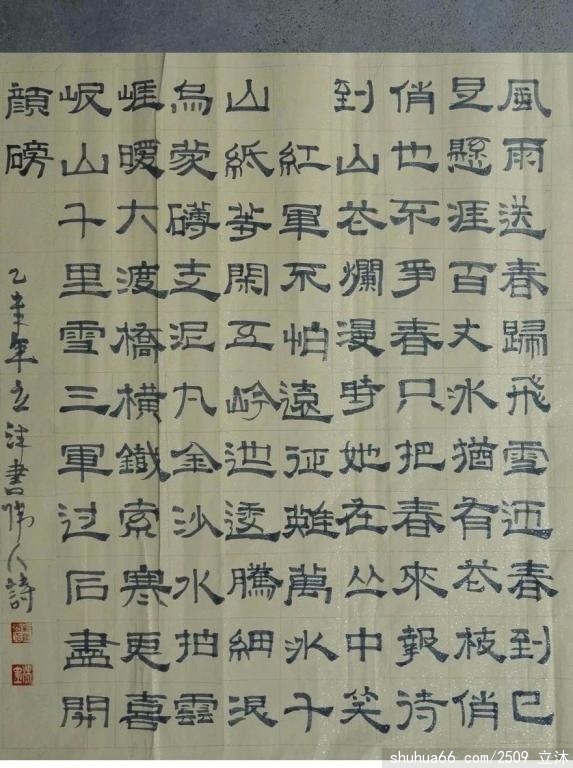 風雨送春歸飛雪迎春到已
是懸涯百丈冰猶有花枝俏
俏也不爭春只把春來報待
到山花爛漫時她在丛中笑
紅軍不怕遠征難萬水千
山紙等閑五岭迆逶騰細浪
烏蒙礴走泥丸金沙水拍雲
崕暖大渡橋橫鐵索寒更喜
岷山千里雪三軍过后盡開
顔磅
乙未年立沐書偉人詩
shuhua66.com/2509 立沐